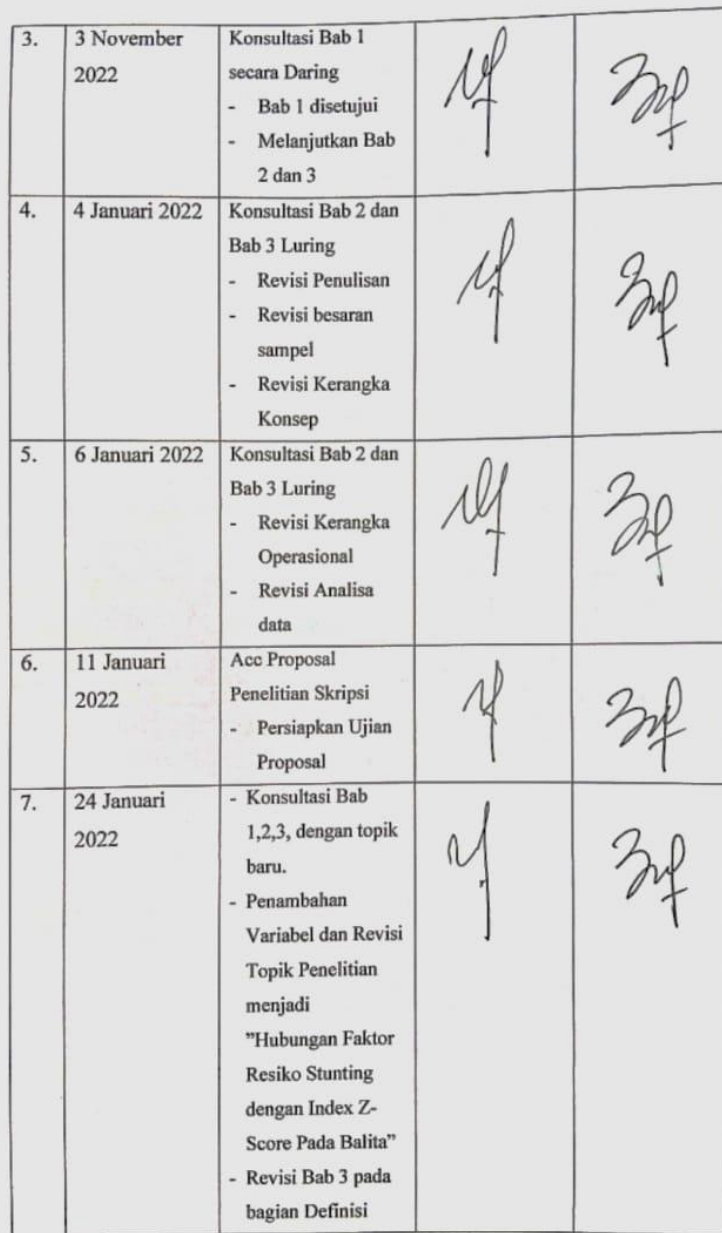 3.
3 November
2022
Konsultasi Bab 1
secara Daring
- Bab 1 disetujui
- Melanjutkan Bab
2 dan 3
4.
4 Januari 2022
Konsultasi Bab 2 dan
Bab 3 Luring
- Revisi Penulisan
- Revisi besaran
sampel
- Revisi Kerangka
Konsep
5.
6 Januari 2022
Konsultasi Bab 2 dan
Bab 3 Luring
- Revisi Kerangka
Operasional
- Revisi Analisa
data
6.
11 Januari
2022
Acc Proposal
Penelitian Skripsi
- Persiapkan Ujian
Proposal
7.
24 Januari
2022
- Konsultasi Bab
1,2,3, dengan topik
baru.
- Penambahan
Variabel dan Revisi
Topik Penelitian
menjadi
”Hubungan Faktor
Resiko Stunting
dengan Index Z-
Score Pada Balita”
- Revisi Bab 3 pada
bagian Definisi